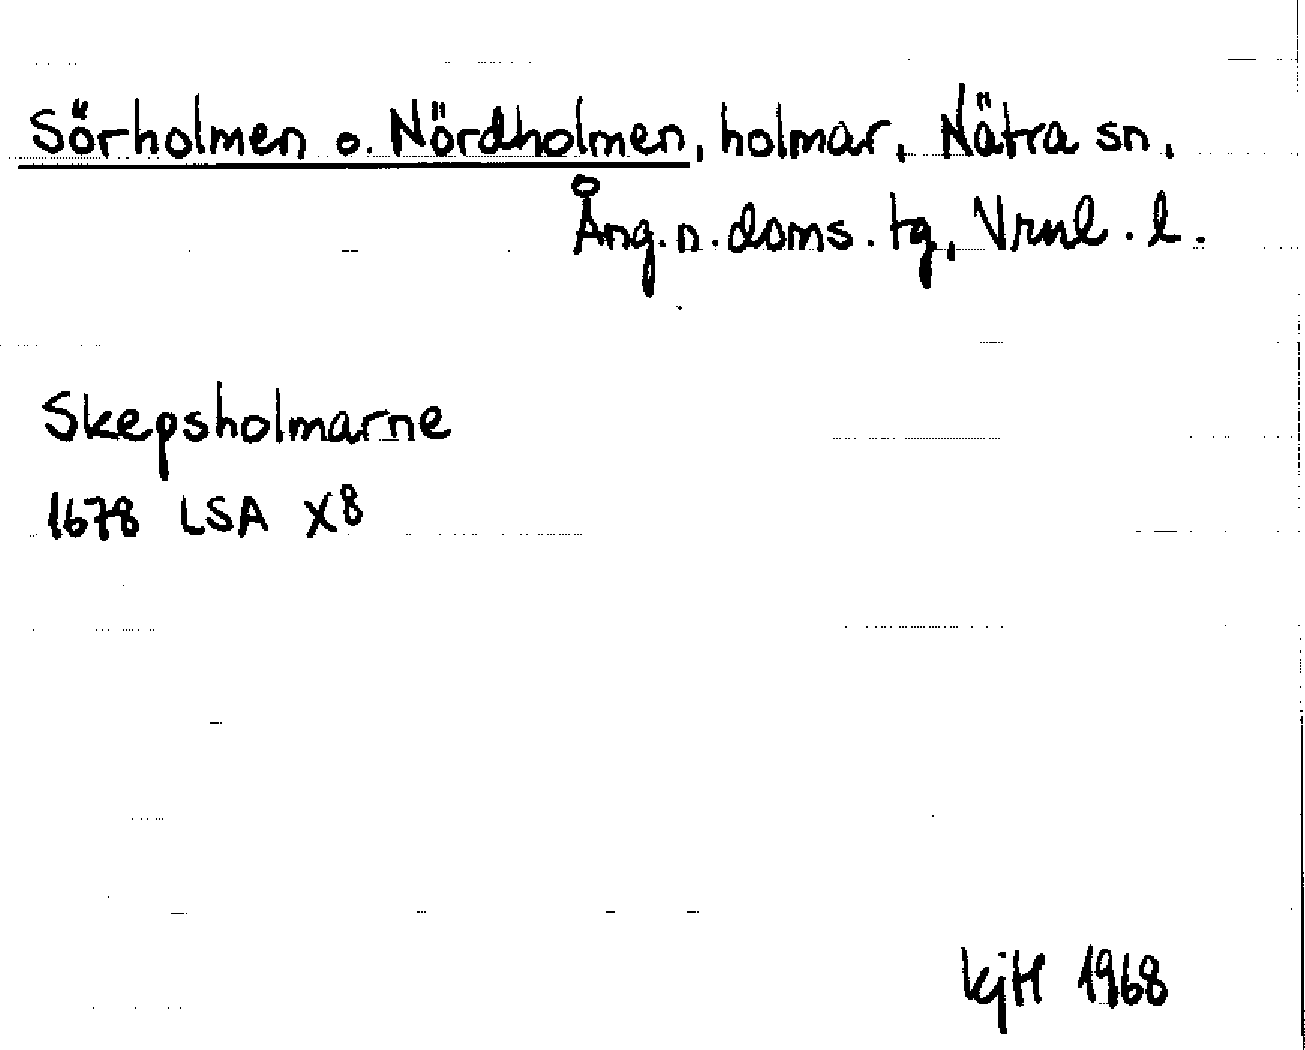 Sörholmen o. Nördholmen, holmar, Nätra sn,
Ång. n. doms. tg, Vrnl. l.
Skepsholmarne
1678 LSA X8
KjH 1968